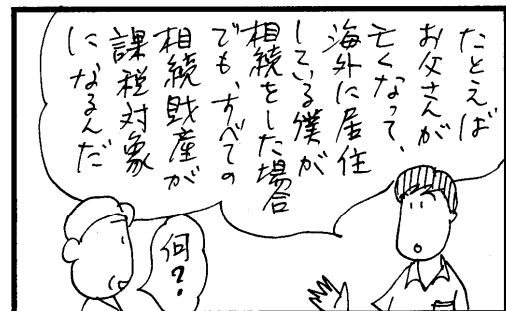 たとえば
お父さんが
亡くなって、
海外に居住
している僕が
相続をした場合
でも、すべての
相続財産が
課税対象
になるんだ
何?